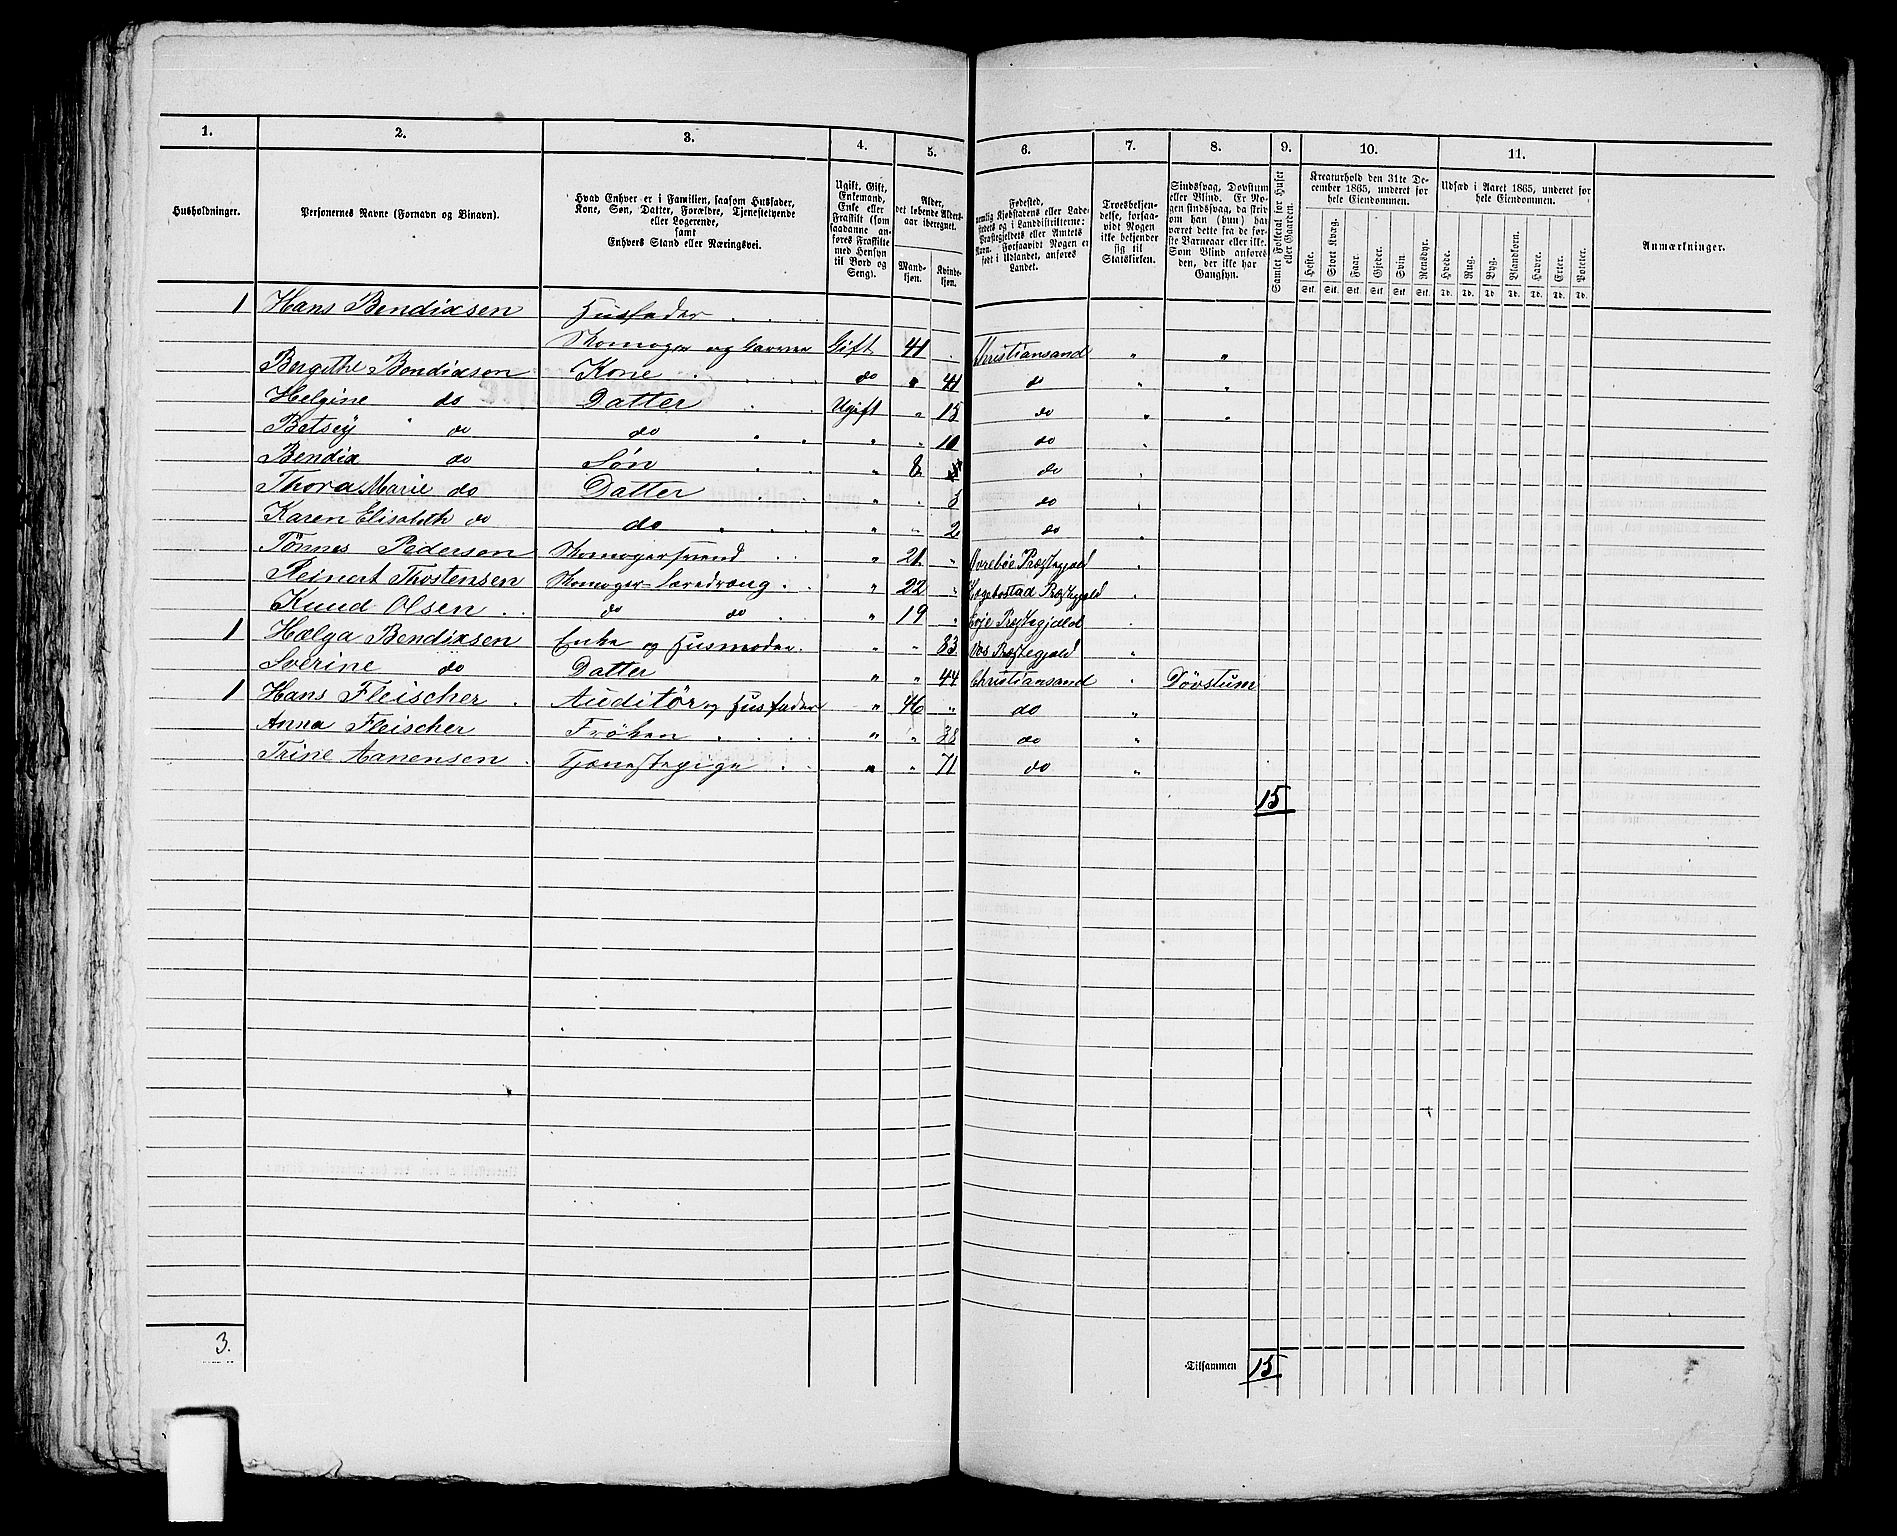 1. 2. 3. 4. 5. 6. 7. 8. 9. 10. 11.
Husholdninger.
Personernes Navne (Fornavn og Binavn).
Hvad Enhver er i Familien, saasom Husfader,
Kone, Søn, Datter, Forældre, Tjenestetyende
eller Logerende,
samt
Enhvers Stand eller Næringsvei.
Ugift, Gift,
Enkemand,
Enke eller
Fraskilt (som
saadanne an-
føres Fraskilte
med Hensyn
til Bord og
Seng).
Alder,
det løbende Alders-
aar iberegnet.
Mand-
kjøn.
Kvinde-
kjøn.
Fødested,
nemlig Kjøbstadens eller Lade-
stedets og i Landdistrikterne:
Præstegjeldets eller Amtets
Navn. Forsaavidt Nogen er
født i Udlandet, anføres
Landet.
Troesbekjen-
delse, forsaa-
vidt Nogen
ikke bekjender
sig til
Statskirken.
Sindssvag, Døvstum
eller Blind. Er No-
gen sindssvag, da skri-
ves om han (hun) har
været dette fra de før-
ste Barneaar eller ikke.
Som Blind anføres
den, der ikke har
Gangsyn.
Samlet Folketal for Huset
eller Gaarden.
Kreaturhold den 31te De-
cember 1865, underet for
hele Eiendommen.
Heste. Stort Kvæg. Faar. Gjeder. Svin. Rensdyr.
Stk. Stk. Stk. Stk. Stk. Stk.
Udsæd i Aaret 1865, underet for
hele Eiendommen.
Hvede. Rug. Byg. Blandkorn. Havre. Erter. Poteter.
Td. Td. Td. Td. Td. Td. Td.
Anmærkninger.
1 Hans Bendixsen Husfader
Skomager og Garver Gift 41 . Christiansand " "
Bergithe Bendixsen Kone do " 41 do " "
Helgine do Datter Ugift " 15 do " "
Betsey do do " " 10 do
Bendix do Søn " 8 do
Thora Marie do Datter " " 5 do
Karen Elisabeth do do " " 2 do
Tønnes Pedersen Skomagersvend " 21 " Præstegjeld
Reinert Thostensen Skomager-Læredreng " 22 " Hægebostad Præstegjeld
Knud Olsen do do " 19 " Evje Præstegjeld
1 Hælga Bendixsen Enke og Husmoder " " 83 Præstegjeld "
Sverine do Datter " " 44 Christiansand " Døvstum
1 Hans Fleischer Auditør og Husfader " 46 " do "
Anna Fleischer Frøken " " 38 do "
Trine Aanensen Tjenestepige " " 71 do "
15
3.
Tilsammen 15